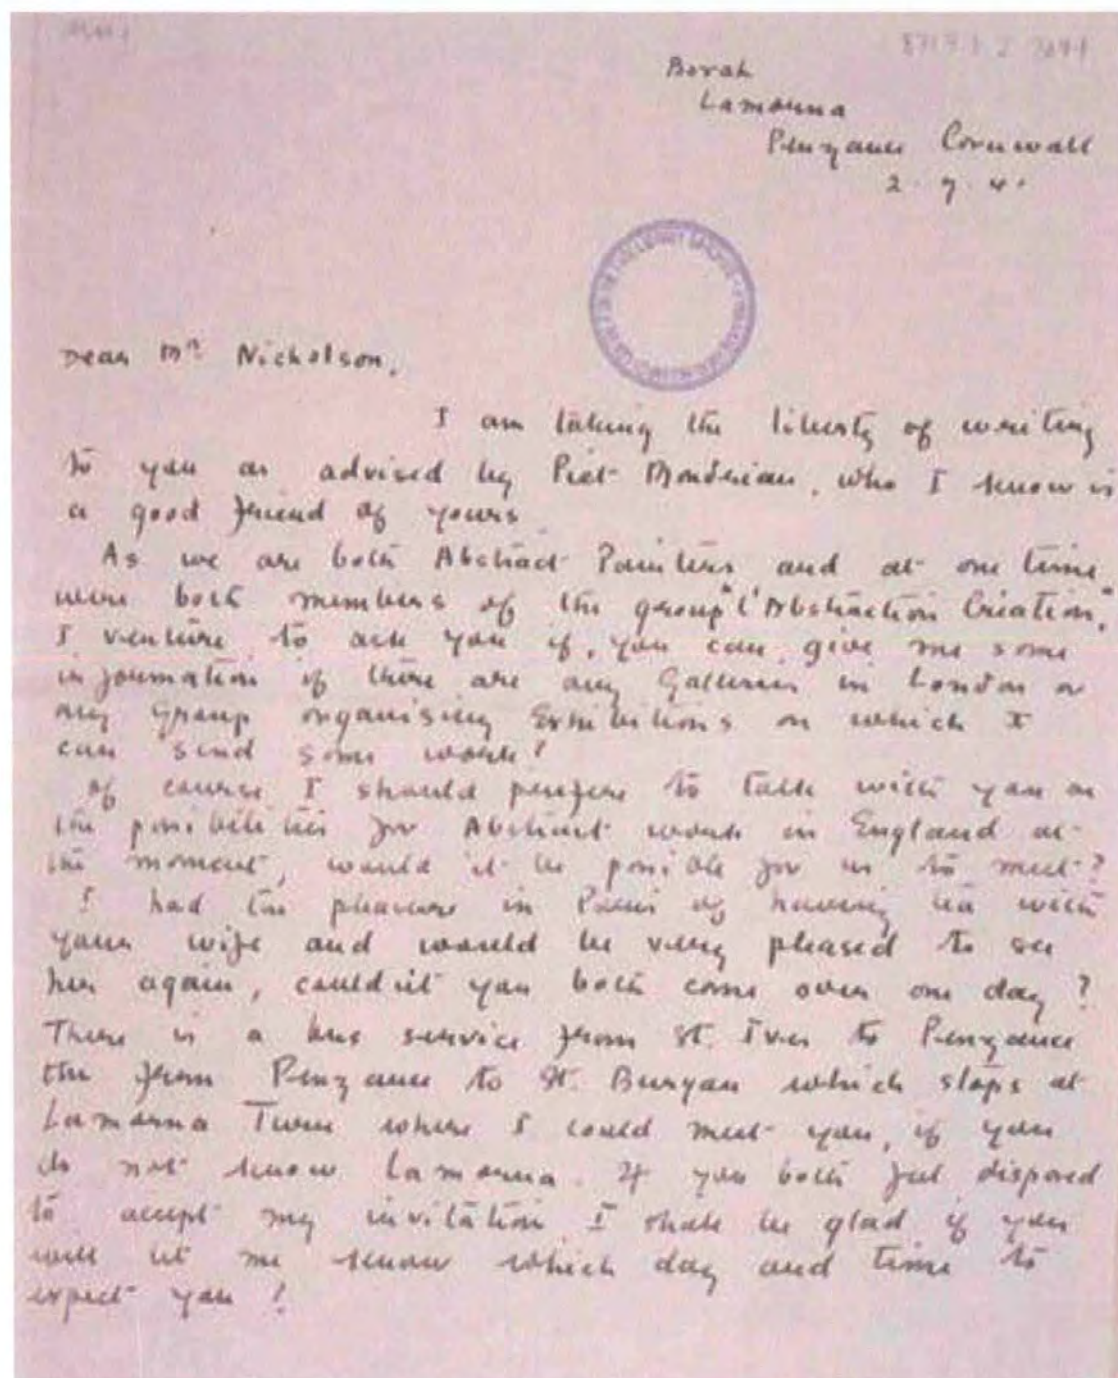 8717.1.2 2944
Borah
Lamorna
Penzance Cornwall
2.7.41
Dear Mr Nicholson,
I am taking the liberty of writing
to you as advised by Piet Mondrian, who I know is
a good friend of yours
As we are both Abstract Painters and at one time
were both members of the group "l'Abstraction Création",
I venture to ask you if, you can, give me some
information if there are any Galleries in London or
any Group organising Exhibitions on which I
can send some work?
of course I should prefere to talk with you on
the posibilities for Abstract work in England at
the moment, would it be posible for us to meet?
I had the pleasure in Paris of having tea with
your wife and would be very pleased to see
her again, could'nt you both come over one day?
There is a bus service from St. Ives to Penzance
the from Penzance to St. Buryan which stops at
Lamorna Turn where I could meet you, if you
do not know Lamorna. If you both feel disposed
to accept my invitation I shall be glad if you
will let me know which day and time to
expect you!